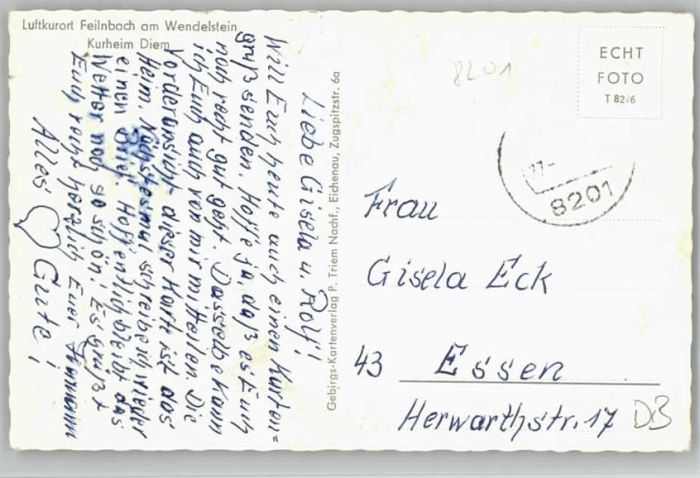 Luftkurort Feilnbach am Wendelstein
Kurheim Diem
Liebe Gisela u. Rolf!
Will Euch heute auch einen Karten=
gruß senden. Hoffe ja, daß es Euch
noch recht gut geht. Dasselbe kann
ich Euch auch von mir mitteilen. Die
Vorderansicht dieser Karte ist das
Heim. Nächstesmal schreibe ich wieder
einen Brief. Hoffentlich bleibt das
Wetter noch so schön! Es grüßt
Euch recht herzlich Euer Hermann
Alles ♡ Gute!
Gebirgs-Kartenverlag P. Triem Nachf., Eichenau, Zugspitzstr. 6a
8201
ECHT
FOTO
T 82/6
8201
Frau
Gisela Eck
43 Essen
Herwarthstr. 17
DB